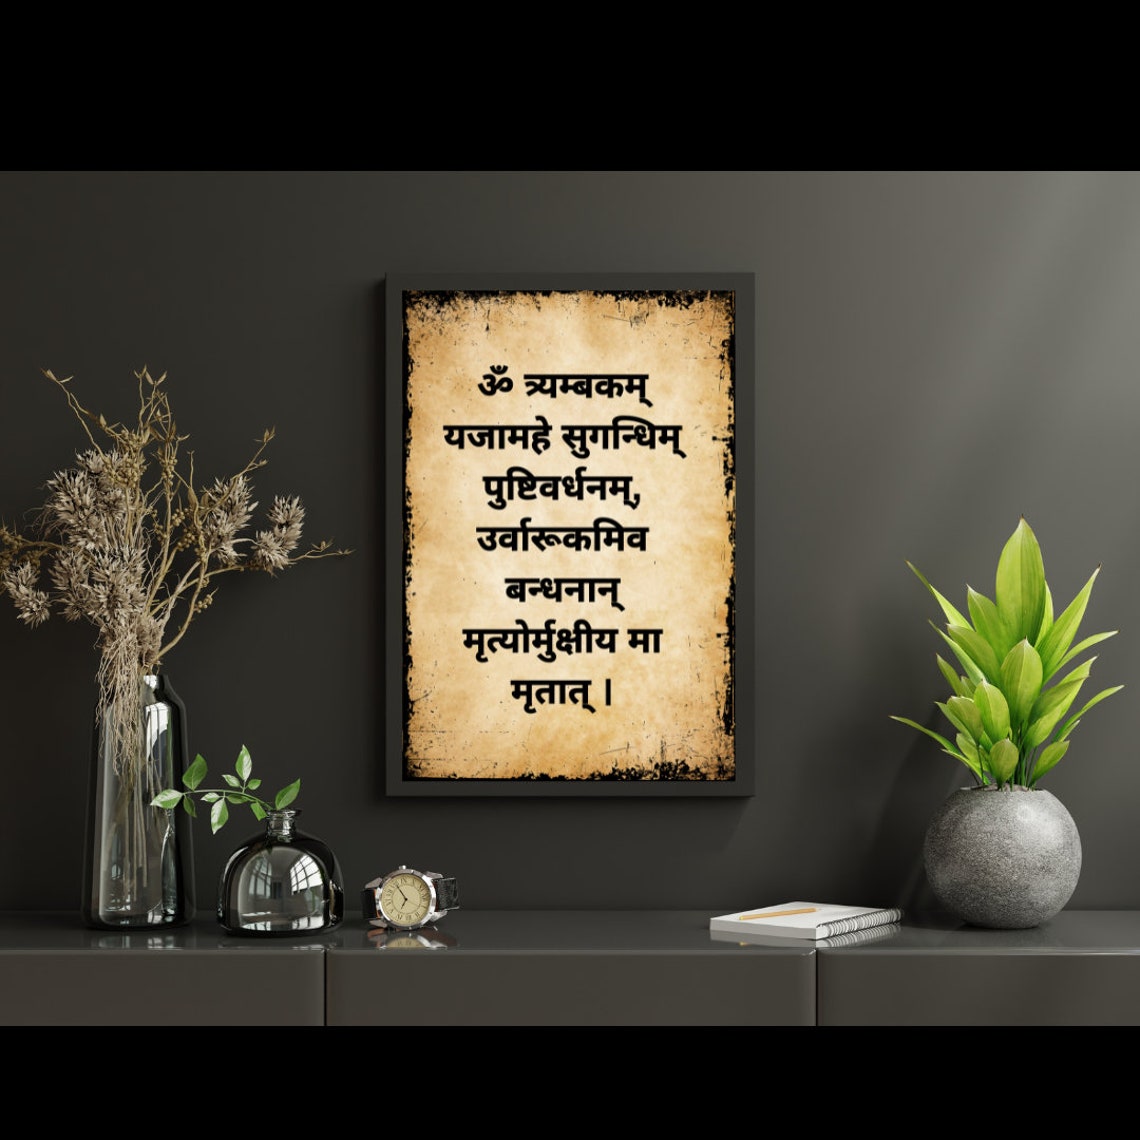 ॐ त्र्यम्बकम्
यजामहे सुगन्धिम्
पुष्टिवर्धनम्,
उर्वारूकमिव
बन्धनान्
मृत्योर्मुक्षीय मा
मृतात् ।